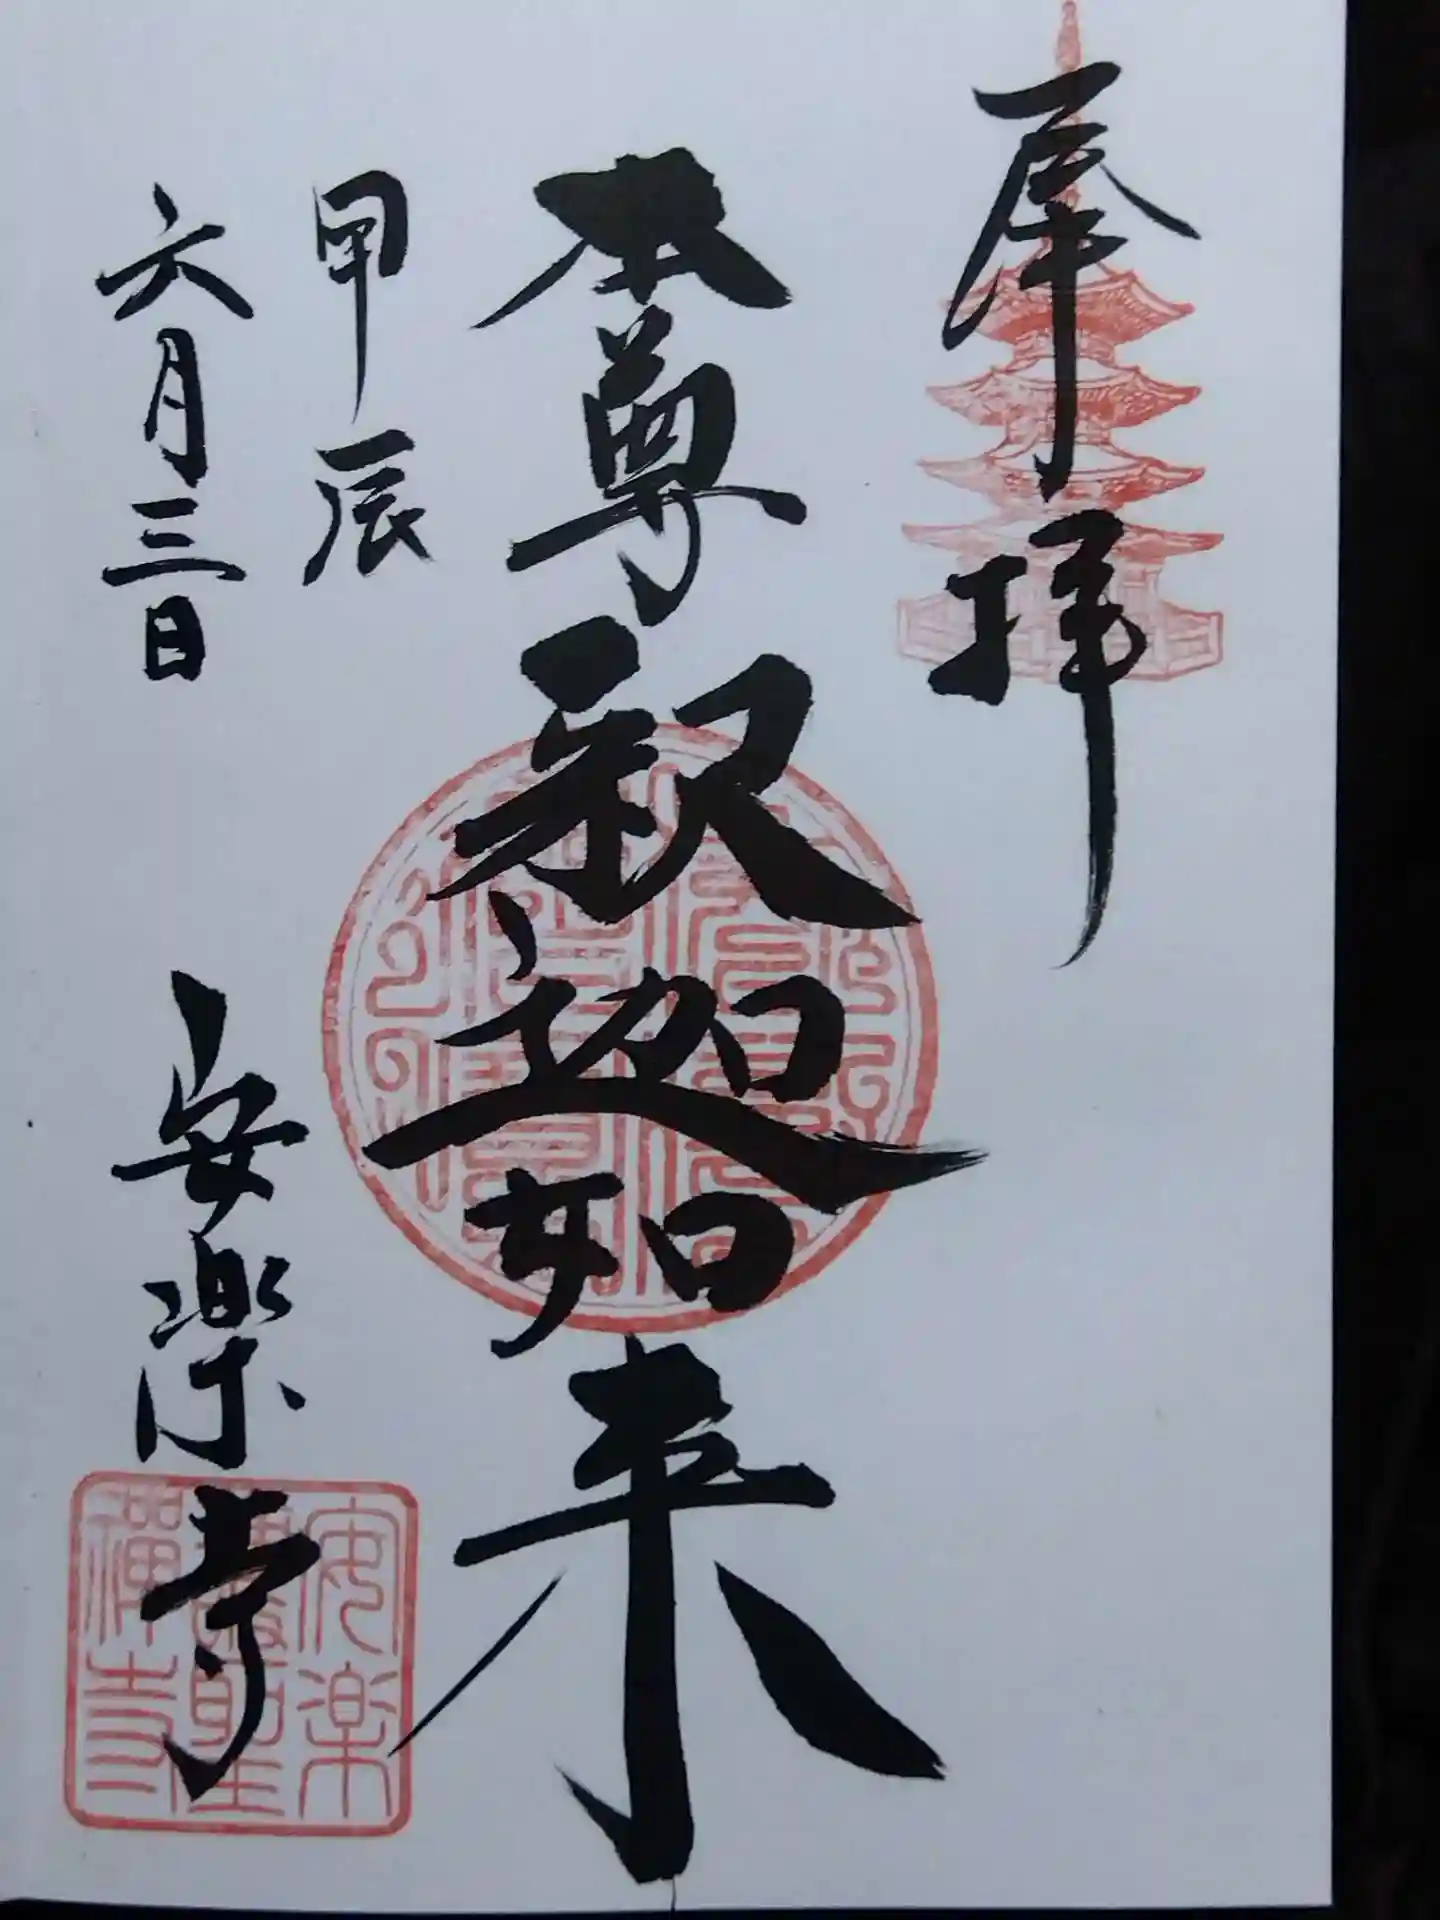 奉拝
本尊釈迦如来
甲辰
六月三日
安楽寺
安楽
護聖
禅寺